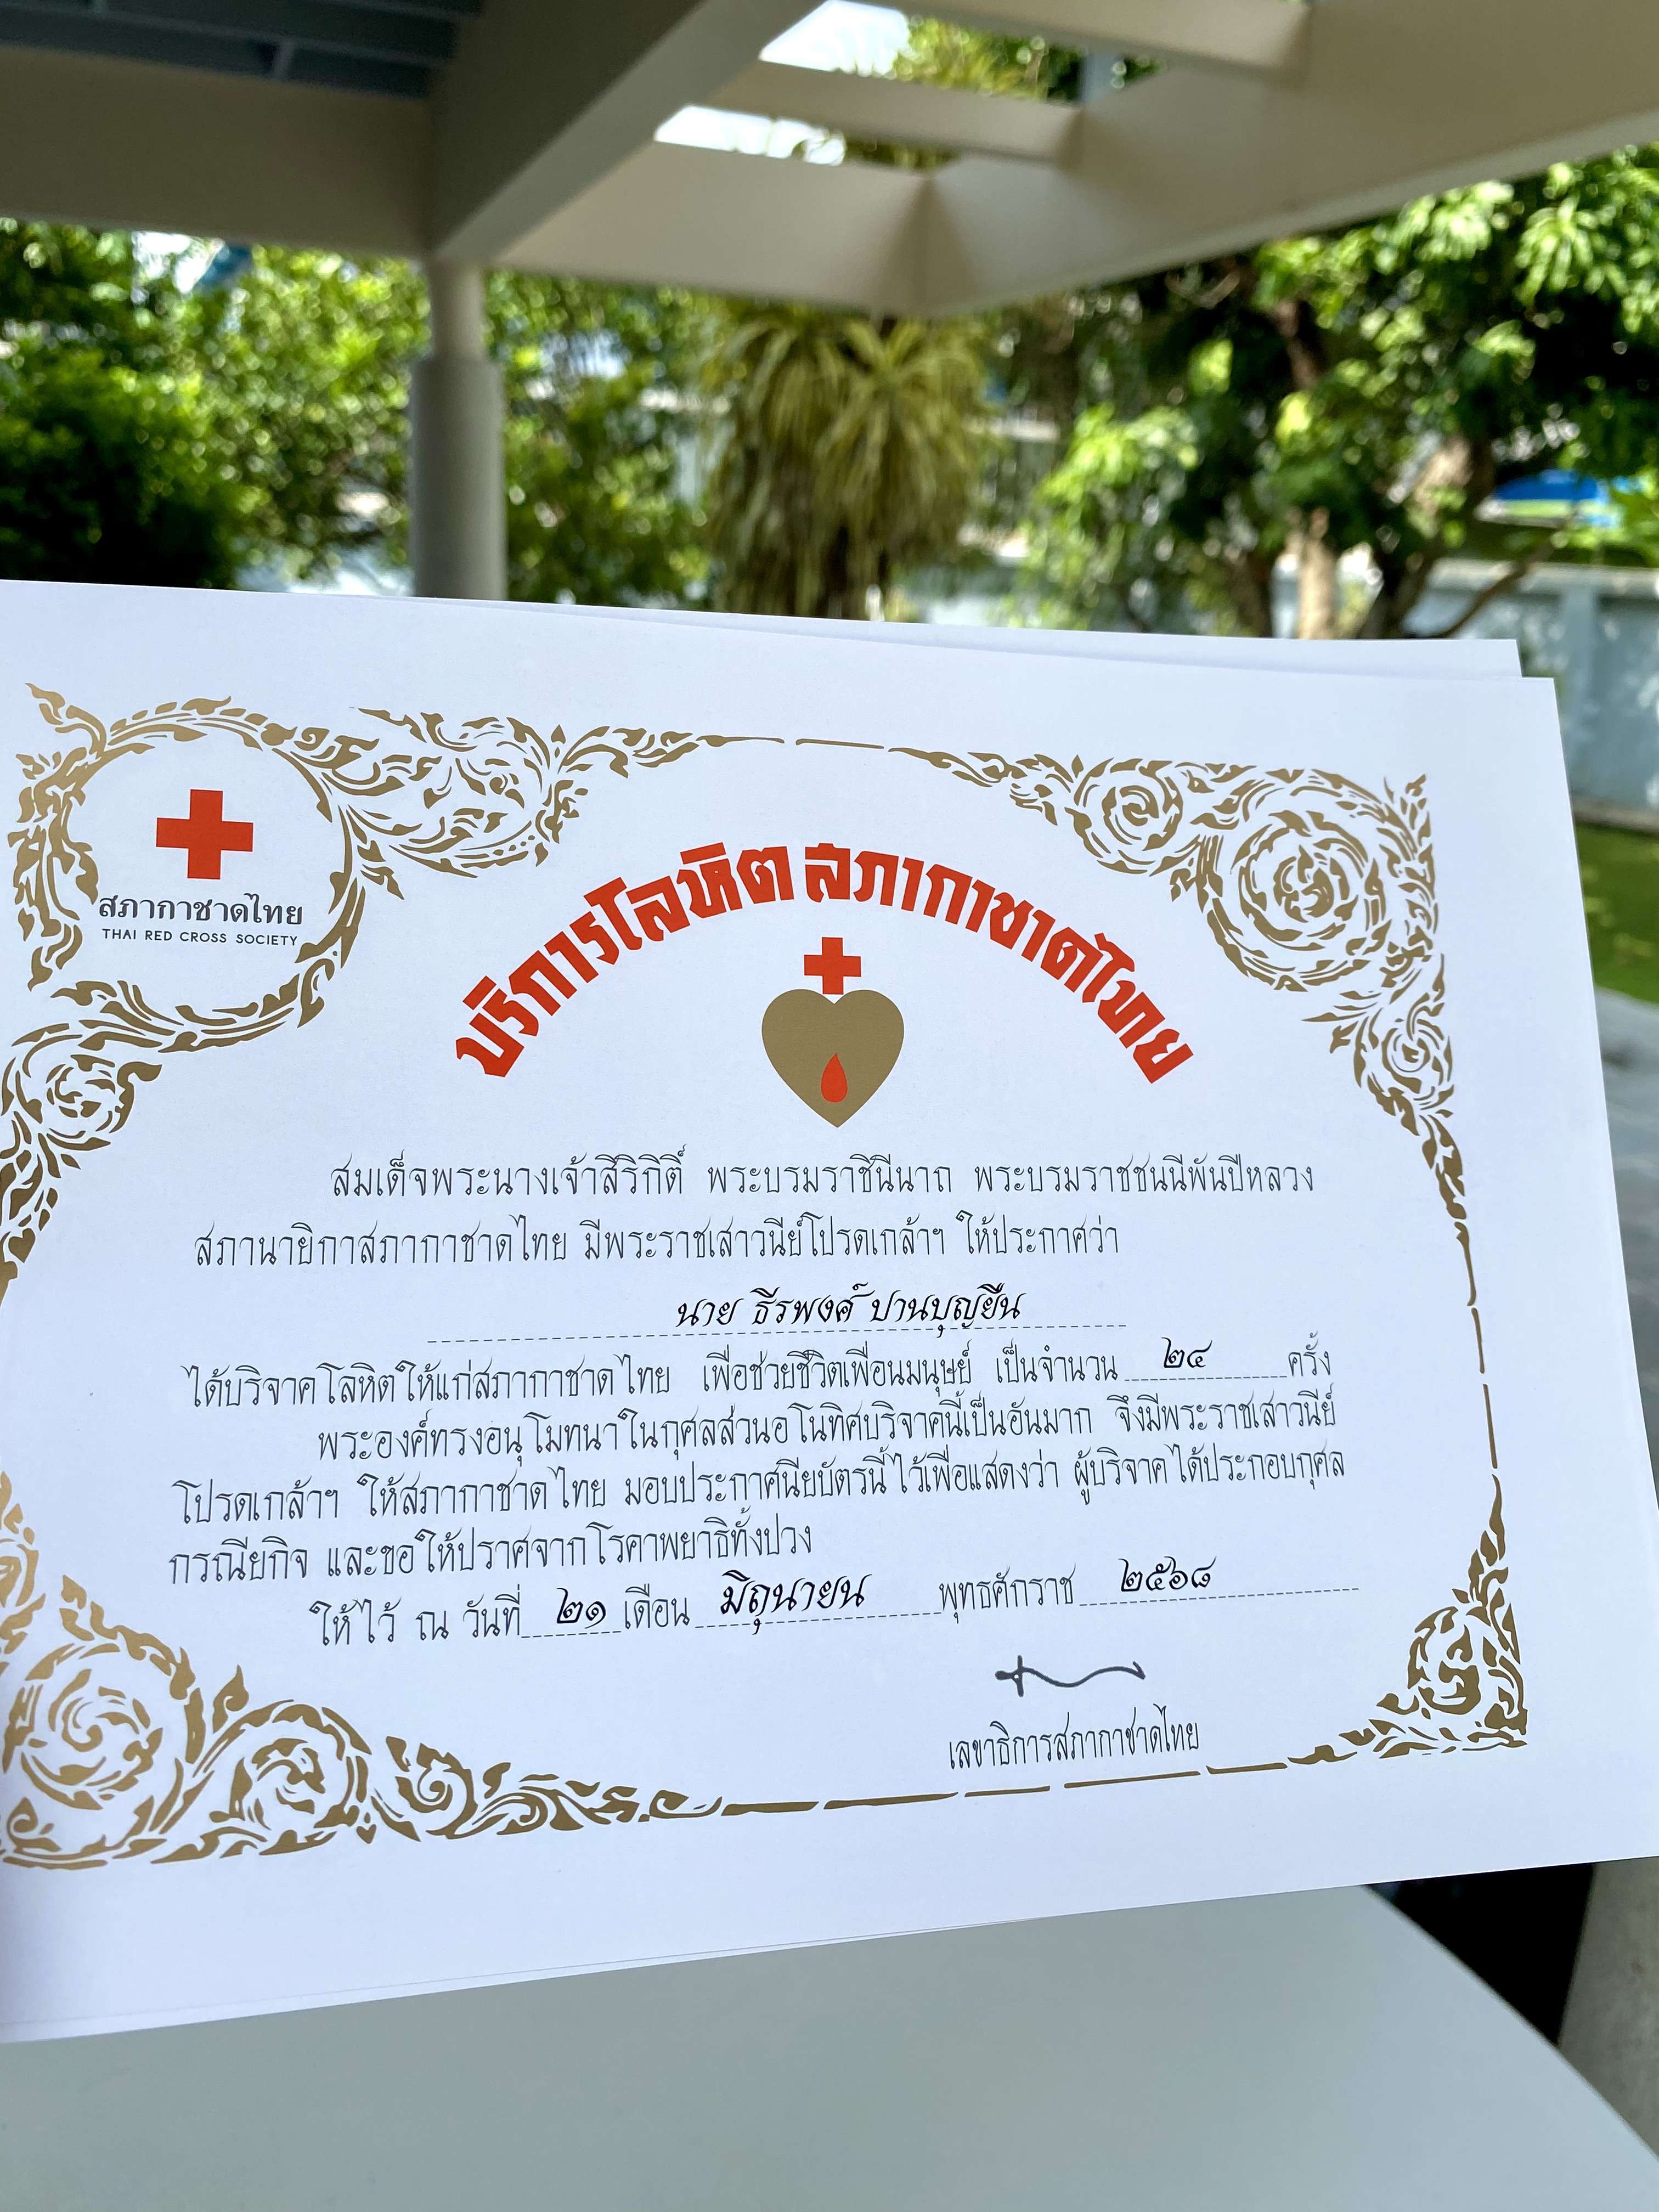 สภากาชาดไทย
THAI RED CROSS SOCIETY
บริการโลหิต สภากาชาดไทย
สมเด็จพระนางเจ้าสิริกิติ์ พระบรมราชินีนาถ พระบรมราชชนนีพันปีหลวง
สภานายิกาสภากาชาดไทย มีพระราชเสาวนีย์โปรดเกล้าฯ ให้ประกาศว่า
นาย ธีรพงศ์ ปานบุญยืน
ได้บริจาคโลหิตให้แก่สภากาชาดไทย เพื่อช่วยชีวิตเพื่อนมนุษย์ เป็นจำนวน ๒๔ ครั้ง
พระองค์ทรงอนุโมทนาในกุศลส่วนอโนทิศบริจาคนี้เป็นอันมาก จึงมีพระราชเสาวนีย์
โปรดเกล้าฯ ให้สภากาชาดไทย มอบประกาศนียบัตรนี้ไว้เพื่อแสดงว่า ผู้บริจาคได้ประกอบกุศล
กรณียกิจ และขอให้ปราศจากโรคาพยาธิทั้งปวง
ให้ไว้ ณ วันที่ ๒๑ เดือน มิถุนายน พุทธศักราช ๒๕๖๘
เลขาธิการสภากาชาดไทย